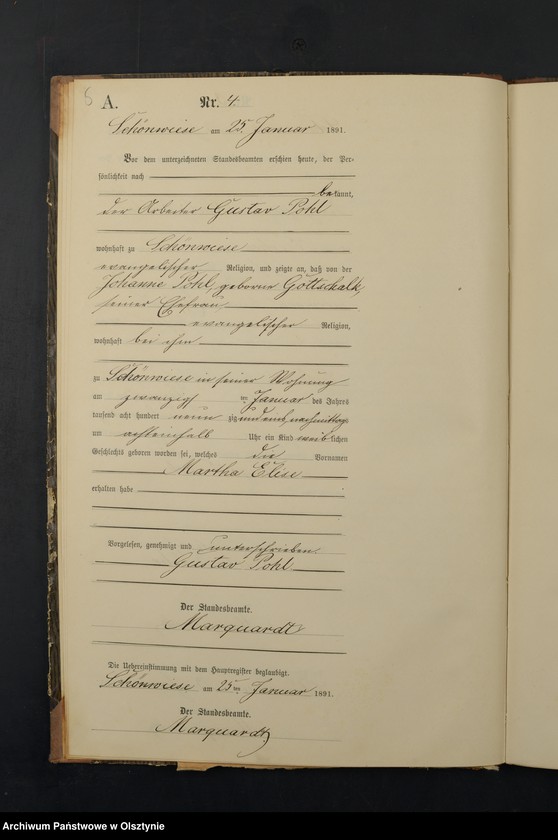 5
A.
Nr. 4.
Schönwiese am 25. Januar 1891.
Vor dem unterzeichneten Standesbeamten erschien heute, der Per-
sönlichkeit nach
bekannt,
der Arbeiter Gustav Pohl
wohnhaft zu Schönwiese
evangelischer Religion, und zeigte an, daß von der
Johanne Pohl, geborne Gottschalk,
seiner Ehefrau
evangelischer Religion,
wohnhaft bei ihm
zu Schönwiese in seiner Wohnung
am zwanzigsten Januar des Jahres
tausend acht hundert neunzig und eins, nachmittags
um achteinhalb Uhr ein Kind weiblichen
Geschlechts geboren worden sei, welches die Vornamen
Martha Elise
erhalten habe
Vorgelesen, genehmigt und unterschrieben
Gustav Pohl
Der Standesbeamte.
Marquardt
Die Uebereinstimmung mit dem Hauptregister beglaubigt.
Schönwiese am 25ten Januar 1891.
Der Standesbeamte.
Marquardt
Archiwum Państwowe w Olsztynie